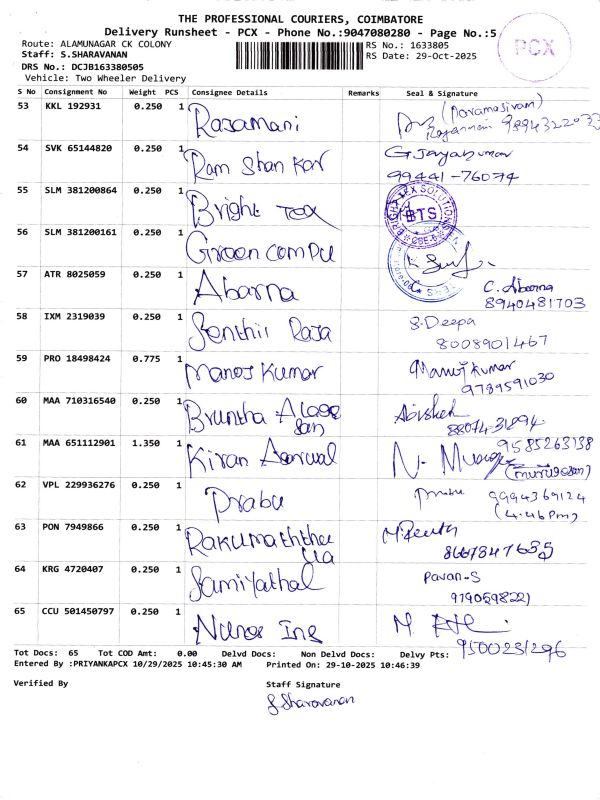 THE PROFESSIONAL COURIERS, COIMBATORE
Delivery Runsheet - PCX - Phone No.:9047080280 - Page No.:5
Route: ALAMUNAGAR CK COLONY
RS No.: 1633805
PCX
Staff: S.SHARAVANAN
RS Date: 29-Oct-2025
DRS No.: DCJB163380505
Vehicle: Two Wheeler Delivery
S No Consignment No Weight PCS Consignee Details Remarks Seal & Signature
53 KKL 192931 0.250 1 Rasamani (Paramasivam)
54 SVK 65144820 0.250 1 Ram Shankar G Jeyakumar
99441-76074
55 SLM 381200864 0.250 1 Bright Tex BTS
56 SLM 381200161 0.250 1 Green Compu
57 ATR 8025059 0.250 1 Abarna C. Abarna
8940481703
58 IXM 2319039 0.250 1 Senthil Raja S. Deepa
8008901467
59 PRO 18498424 0.775 1 Manoj Kumar Manoj Kumar
9789591030
60 MAA 710316540 0.250 1 Bruntha Alage
san
61 MAA 651112901 1.350 1 Kiran Agarwal 9585263138
(murugesan)
62 VPL 229936276 0.250 1 Prabu Prabu 9994369124
(4.46 Pm)
63 PON 7949866 0.250 1 Rakumaththu
64 KRG 4720407 0.250 1 Samiyathal Pavan-S
65 CCU 501450797 0.250 1 Nuros Ing
9500231296
Tot Docs: 65 Tot COD Amt: 0.00 Delvd Docs: Non Delvd Docs: Delvy Pts:
Entered By :PRIYANKAPCX 10/29/2025 10:45:30 AM Printed On: 29-10-2025 10:46:39
Verified By Staff Signature
S Sharavanan